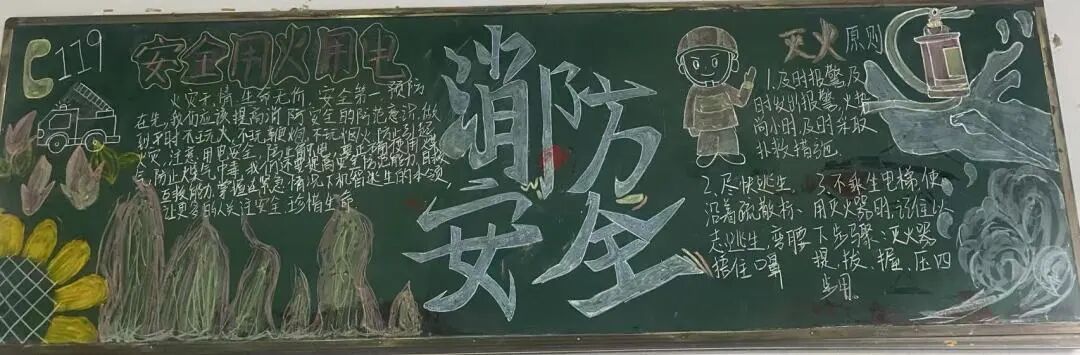 119
安全用火用电
火灾无情,生命无价,安全第一,预防
在先,我们应该提高消防安全的防范意识,做
到平时不玩火,不玩鞭炮,不玩烟火,防止引起
火灾,注意用电安全,防止漏电,要正确使用煤
气,防止煤气中毒,我们还要提高安全防范能力,自救
互救能力,掌握在紧急情况下机智逃生的本领,
让更多的人关注安全,珍惜生命
消防
安全
灭火原则
1.及时报警,及
时火灾报警,火势
尚小时,及时采取
扑救措施
2.尽快逃生,
沿着疏散标
走逃生,弯腰
捂住口鼻
3.不乘坐电梯,使
用灭火器时,记住以
下步骤:灭火器
提、拔、握、压四
步用。